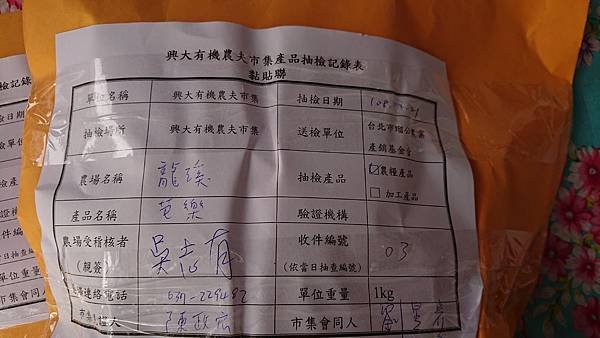 興大有機農夫市集產品抽檢記錄表
黏貼聯
單位名稱 興大有機農夫市集 抽檢日期
抽檢場所 興大有機農夫市集 送檢單位 台北市瑠公農業
產銷基金會
農場名稱 龍溪 抽檢產品 ☑農糧產品
☐加工產品
產品名稱 芭樂 驗證機構
農場受稽核者 收件編號 03
(親簽) 吳志有 (依當日抽查編號)
連絡電話 單位重量 1kg
陳政宏 市集會同人
檢記錄
檢日期
檢單
檢產
驗證
收件編
當日抽查
單位重
集會同